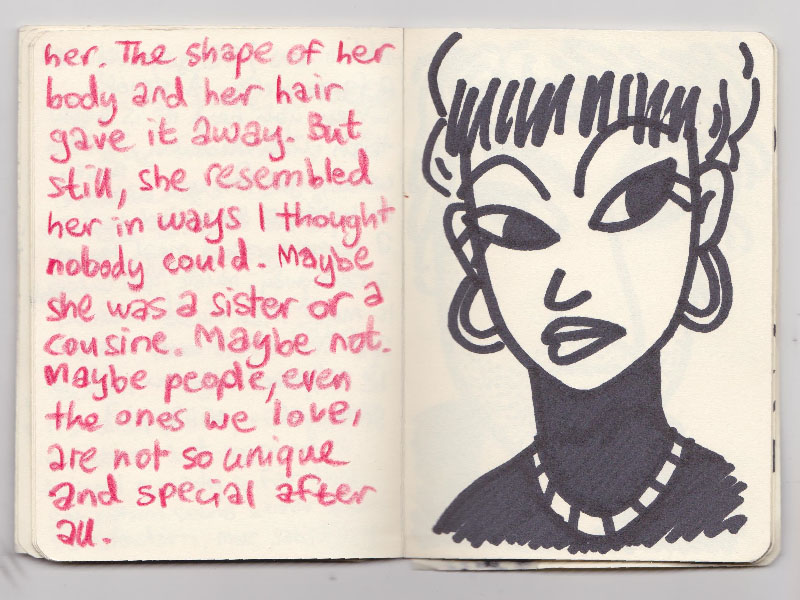 her. The shape of her
body and her hair
gave it away. But
still, she resembled
her in ways I thought
nobody could. Maybe
she was a sister or a
cousine. Maybe not.
Maybe people, even
the ones we love,
are not so unique
and special after
all.